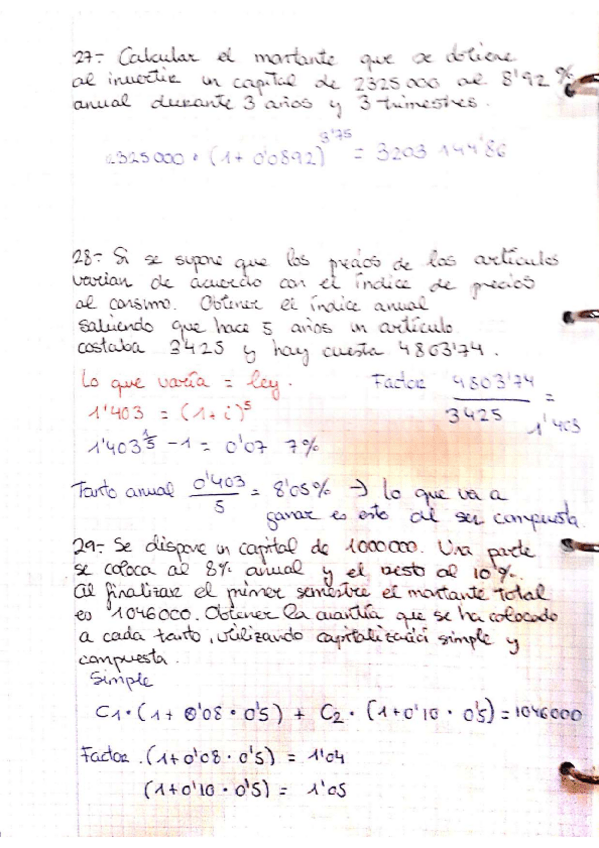 27- Calcular el montante que se obtiene
al invertir un capital de 2325000 al 8'92 %
anual durante 3 años y 3 trimestres.
2325000 • (1+ 0'0892)^3'75 = 3203 144'86
28- Si se supone que los precios de los artículos
varian de acuerdo con el índice de precios
al consumo. Obtener el índice anual
sabiendo que hace 5 años un artículo
costaba 3425 y hoy cuesta 4803'74.
Lo que varía = ley.
Factor 4803'74 / 3425 = 1'403
1'403 = (1+i)^5
1'403^1/5 - 1 = 0'07 7%
Tanto anual 0'403 / 5 = 8'05% → lo que va a
ganar es esto al ser compuesta.
29- Se dispone un capital de 1000000. Una parte
se coloca al 8% anual y el resto al 10%.
al finalizar el primer semestre el montante total
es 1046000. Obtener la cuantía que se ha colocado
a cada tanto, utilizando capitalización simple y
compuesta.
Simple
C1 • (1+ 0'08 • 0'5) + C2 • (1+0'10 • 0'5) = 1046000
Factor. (1+0'08 • 0'5) = 1'04
(1+0'10 • 0'5) = 1'05